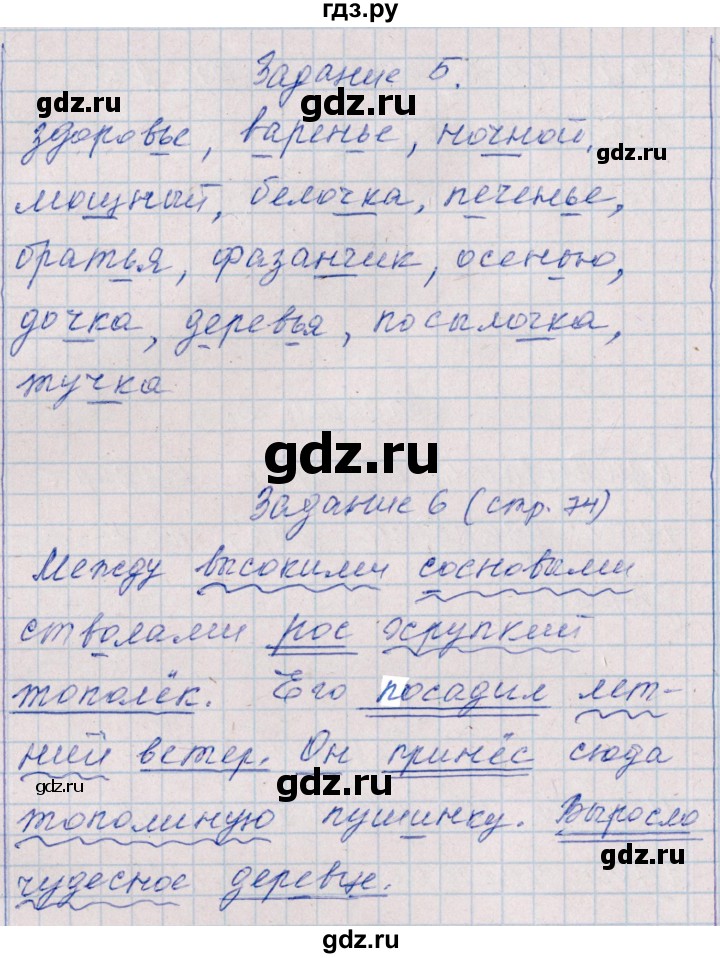 гдз.ру
Задание 5.
gdz.ru
gdz.ru
здоровье, варенье, ночной,
gdz.ru
мощный, белочка, печенье,
братья, фазанчик, осенью,
дочка, деревья, посылочка,
тучка
gdz.ru
Задание 6 (стр. 74)
Между высокими сосновыми
стволами рос хрупкий
тополёк. Его посадил лет-
ний ветер. Он принёс сюда
gdz.ru
gdz.ru
тополиную пушинку. Выросло
gdz.ru
чудесное деревце.
gdz.ru